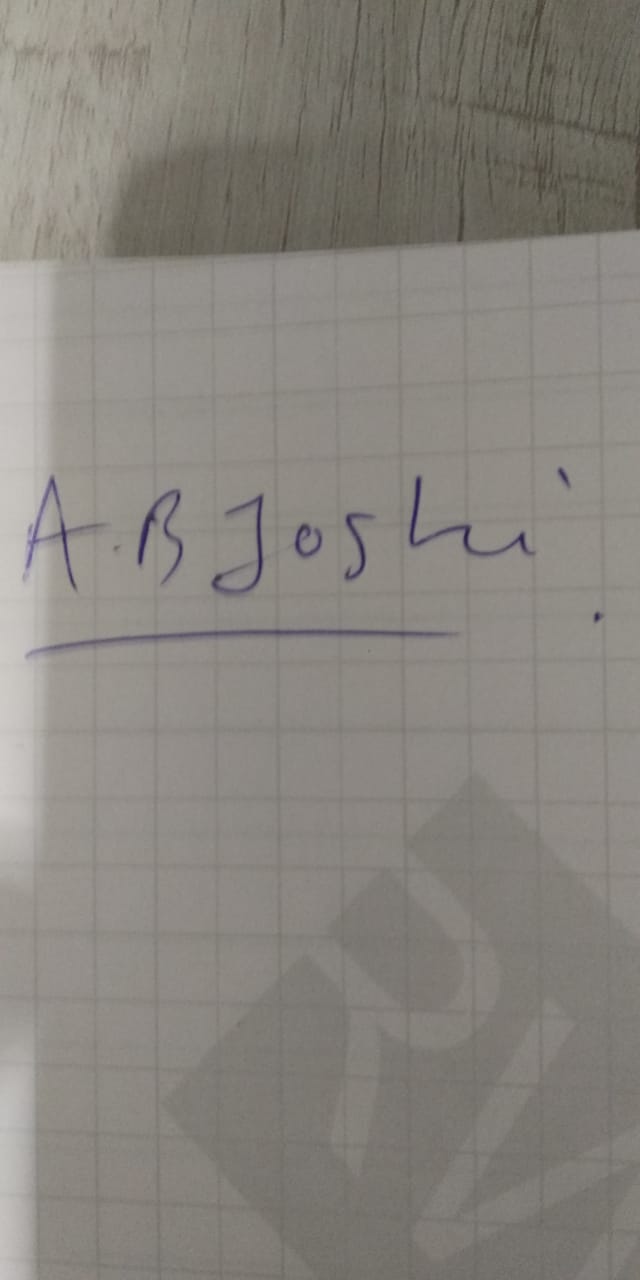 A.B Joshi.